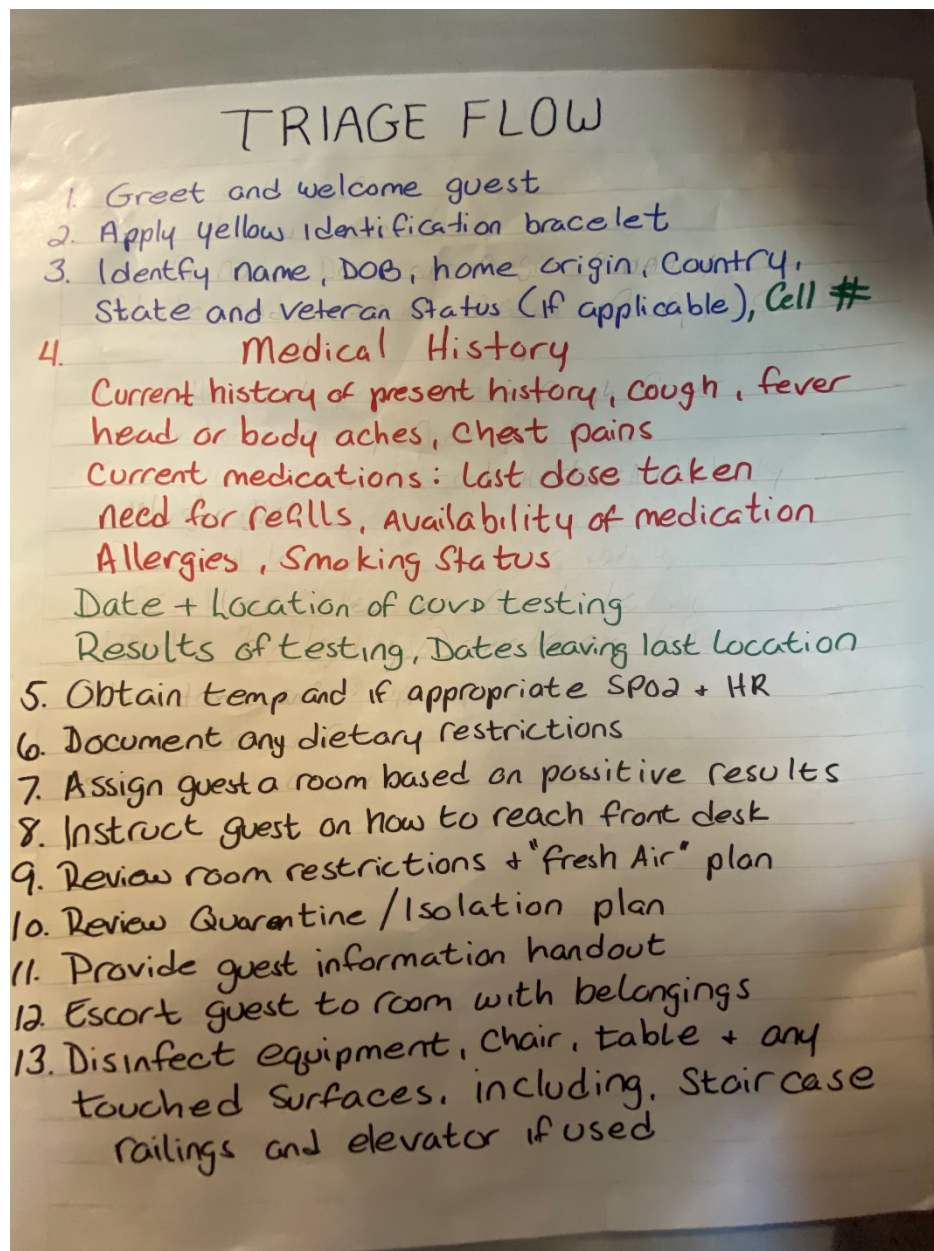 TRIAGE FLOW
1. Greet and welcome guest
2. Apply yellow identification bracelet
3. Identfy name, DOB, home origin, Country,
State and veteran Status (if applicable), Cell #
4. Medical History
Current history of present history, cough, fever
head or body aches, Chest pains
Current medications: last dose taken
need for refills, Availability of medication
Allergies, Smoking Status
Date + Location of COVD testing
Results of testing, Dates leaving last location
5. Obtain temp and if appropriate SPO2 + HR
6. Document any dietary restrictions
7. Assign guest a room based on possitive results
8. Instruct guest on how to reach front desk
9. Review room restrictions + "fresh Air" plan
10. Review Quarentine/Isolation plan
11. Provide guest information handout
12. Escort guest to room with belongings
13. Disinfect equipment, Chair, table + any
touched Surfaces, including, Staircase
railings and elevator if used